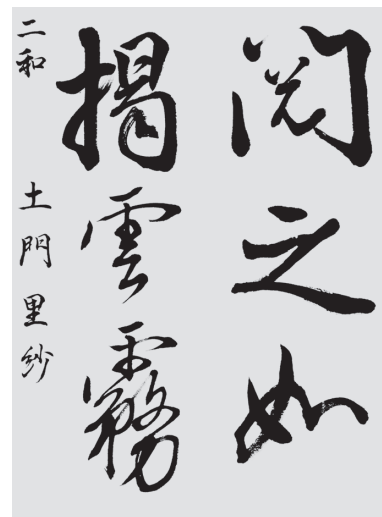 閲之如
掲雲霧
二和 土門里紗